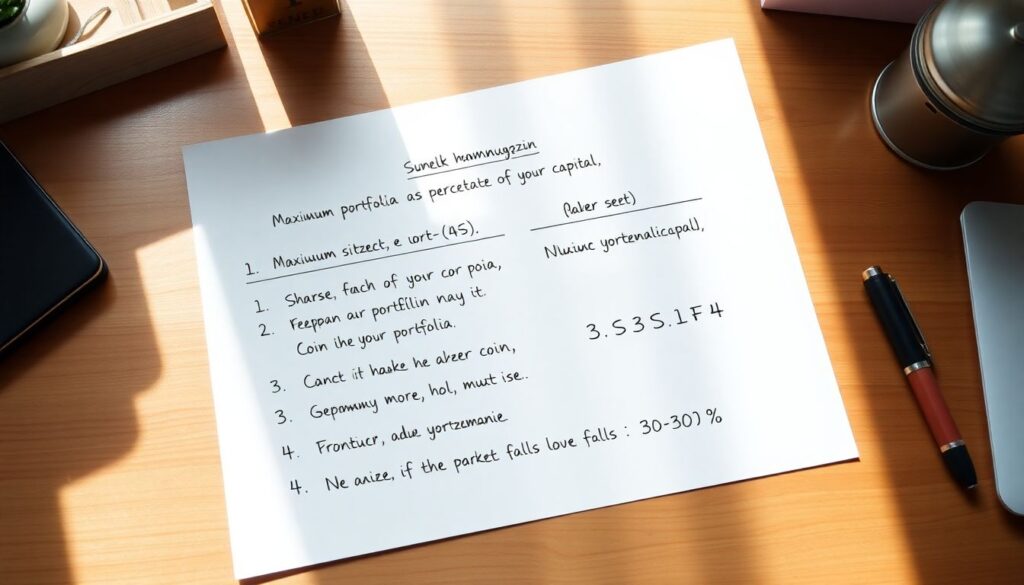 Sunelk hnmnugzzin
Maxiuum portfolia as percetate of your capital,
1. Maxiuum sitzect, e uort-(45).
1. Sharse, fach of your cor poia,
2. Feeppan aur portfilin nay it.
Coin ihe your portfolia.
3. Canct it haske he alzer coin,
3. Gepommy more, hol, mutt ise..
4. Frontucr, adue yortzemanie
4. Ne anize, if the parket falls love falls : 30-30) %
(laler seet)
Nluinc yortenalicapall,
3.S3S.1F4